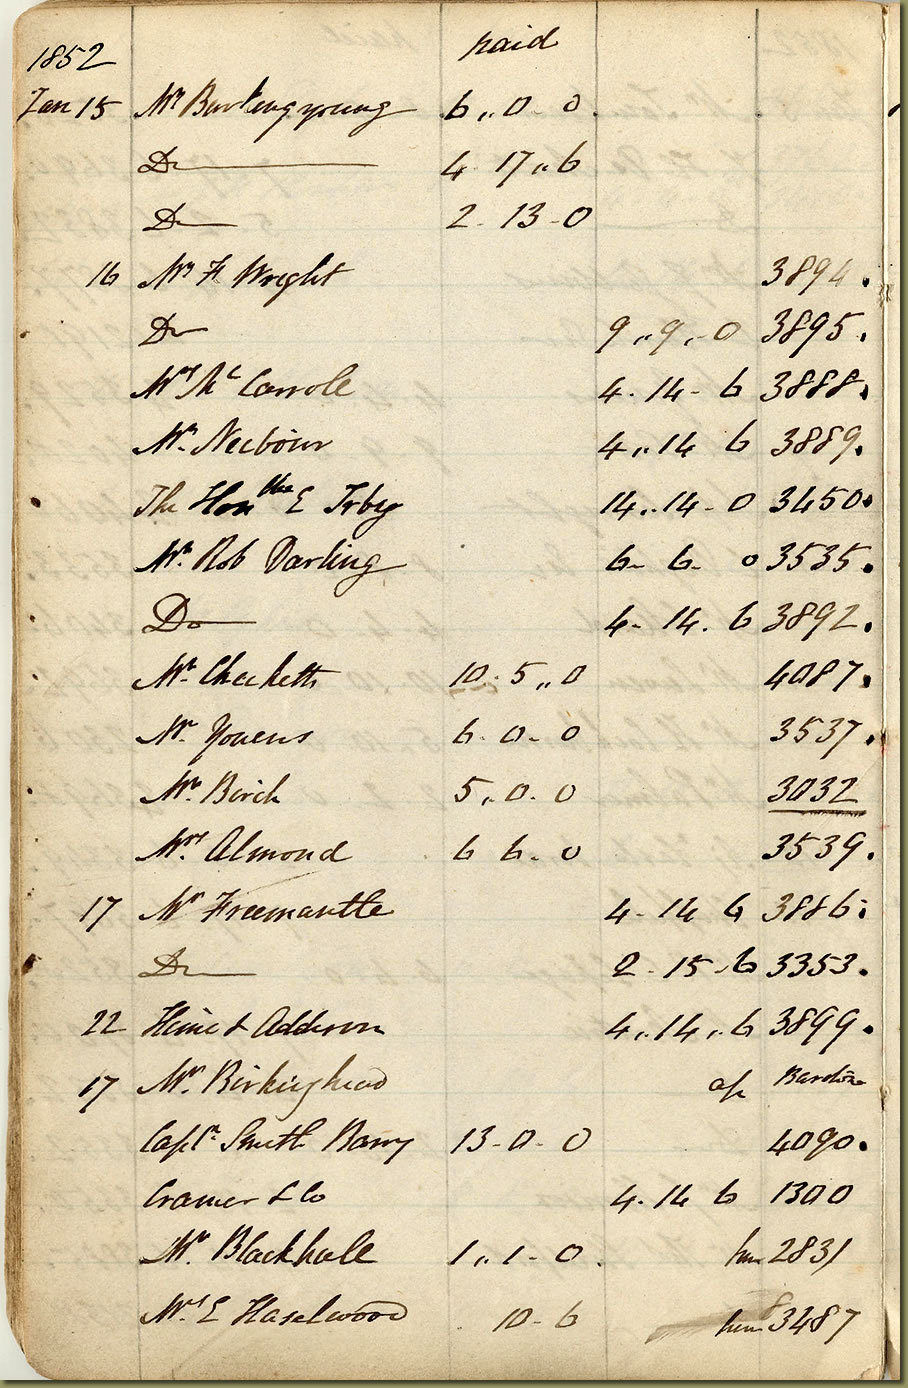 1852 paid
Jan 15 Mr Barkingyoung 6,,0-0.
Do 4 17,,6
Do 2-13-0
16 Mr F Wright 3894.
Do 9,,9,-0 3895.
Mrs Mc Carrole 4.14-6 3888.
Mr. Neebour 4,,14 6 3889.
The Honble E Irby 14,,14-0 3450.
Mr. Rob Darling 6-6-0 3535.
Do 4-14.6 3892.
Mr. Checketts 10.5,,0 4087.
Mr. Youens 6.0-0 3537.
Mr. Birch 5,,0.0 3032
Mrs. Almond 6 6-0 3539.
17 Mr Freemantle 4-14 6 3886.
Do 2-15-6 3353.
22 Heine & Addison 4,,14,,6 3899.
17 Mr. Birkinghead
Captn Smith Barry 13-0-0 4090.
Cramer & Co 4.14 6 1300
Mr. Blackhale 1,,1-0. hire 2831
Mrs. E Haselwood 10-6 hire 3487